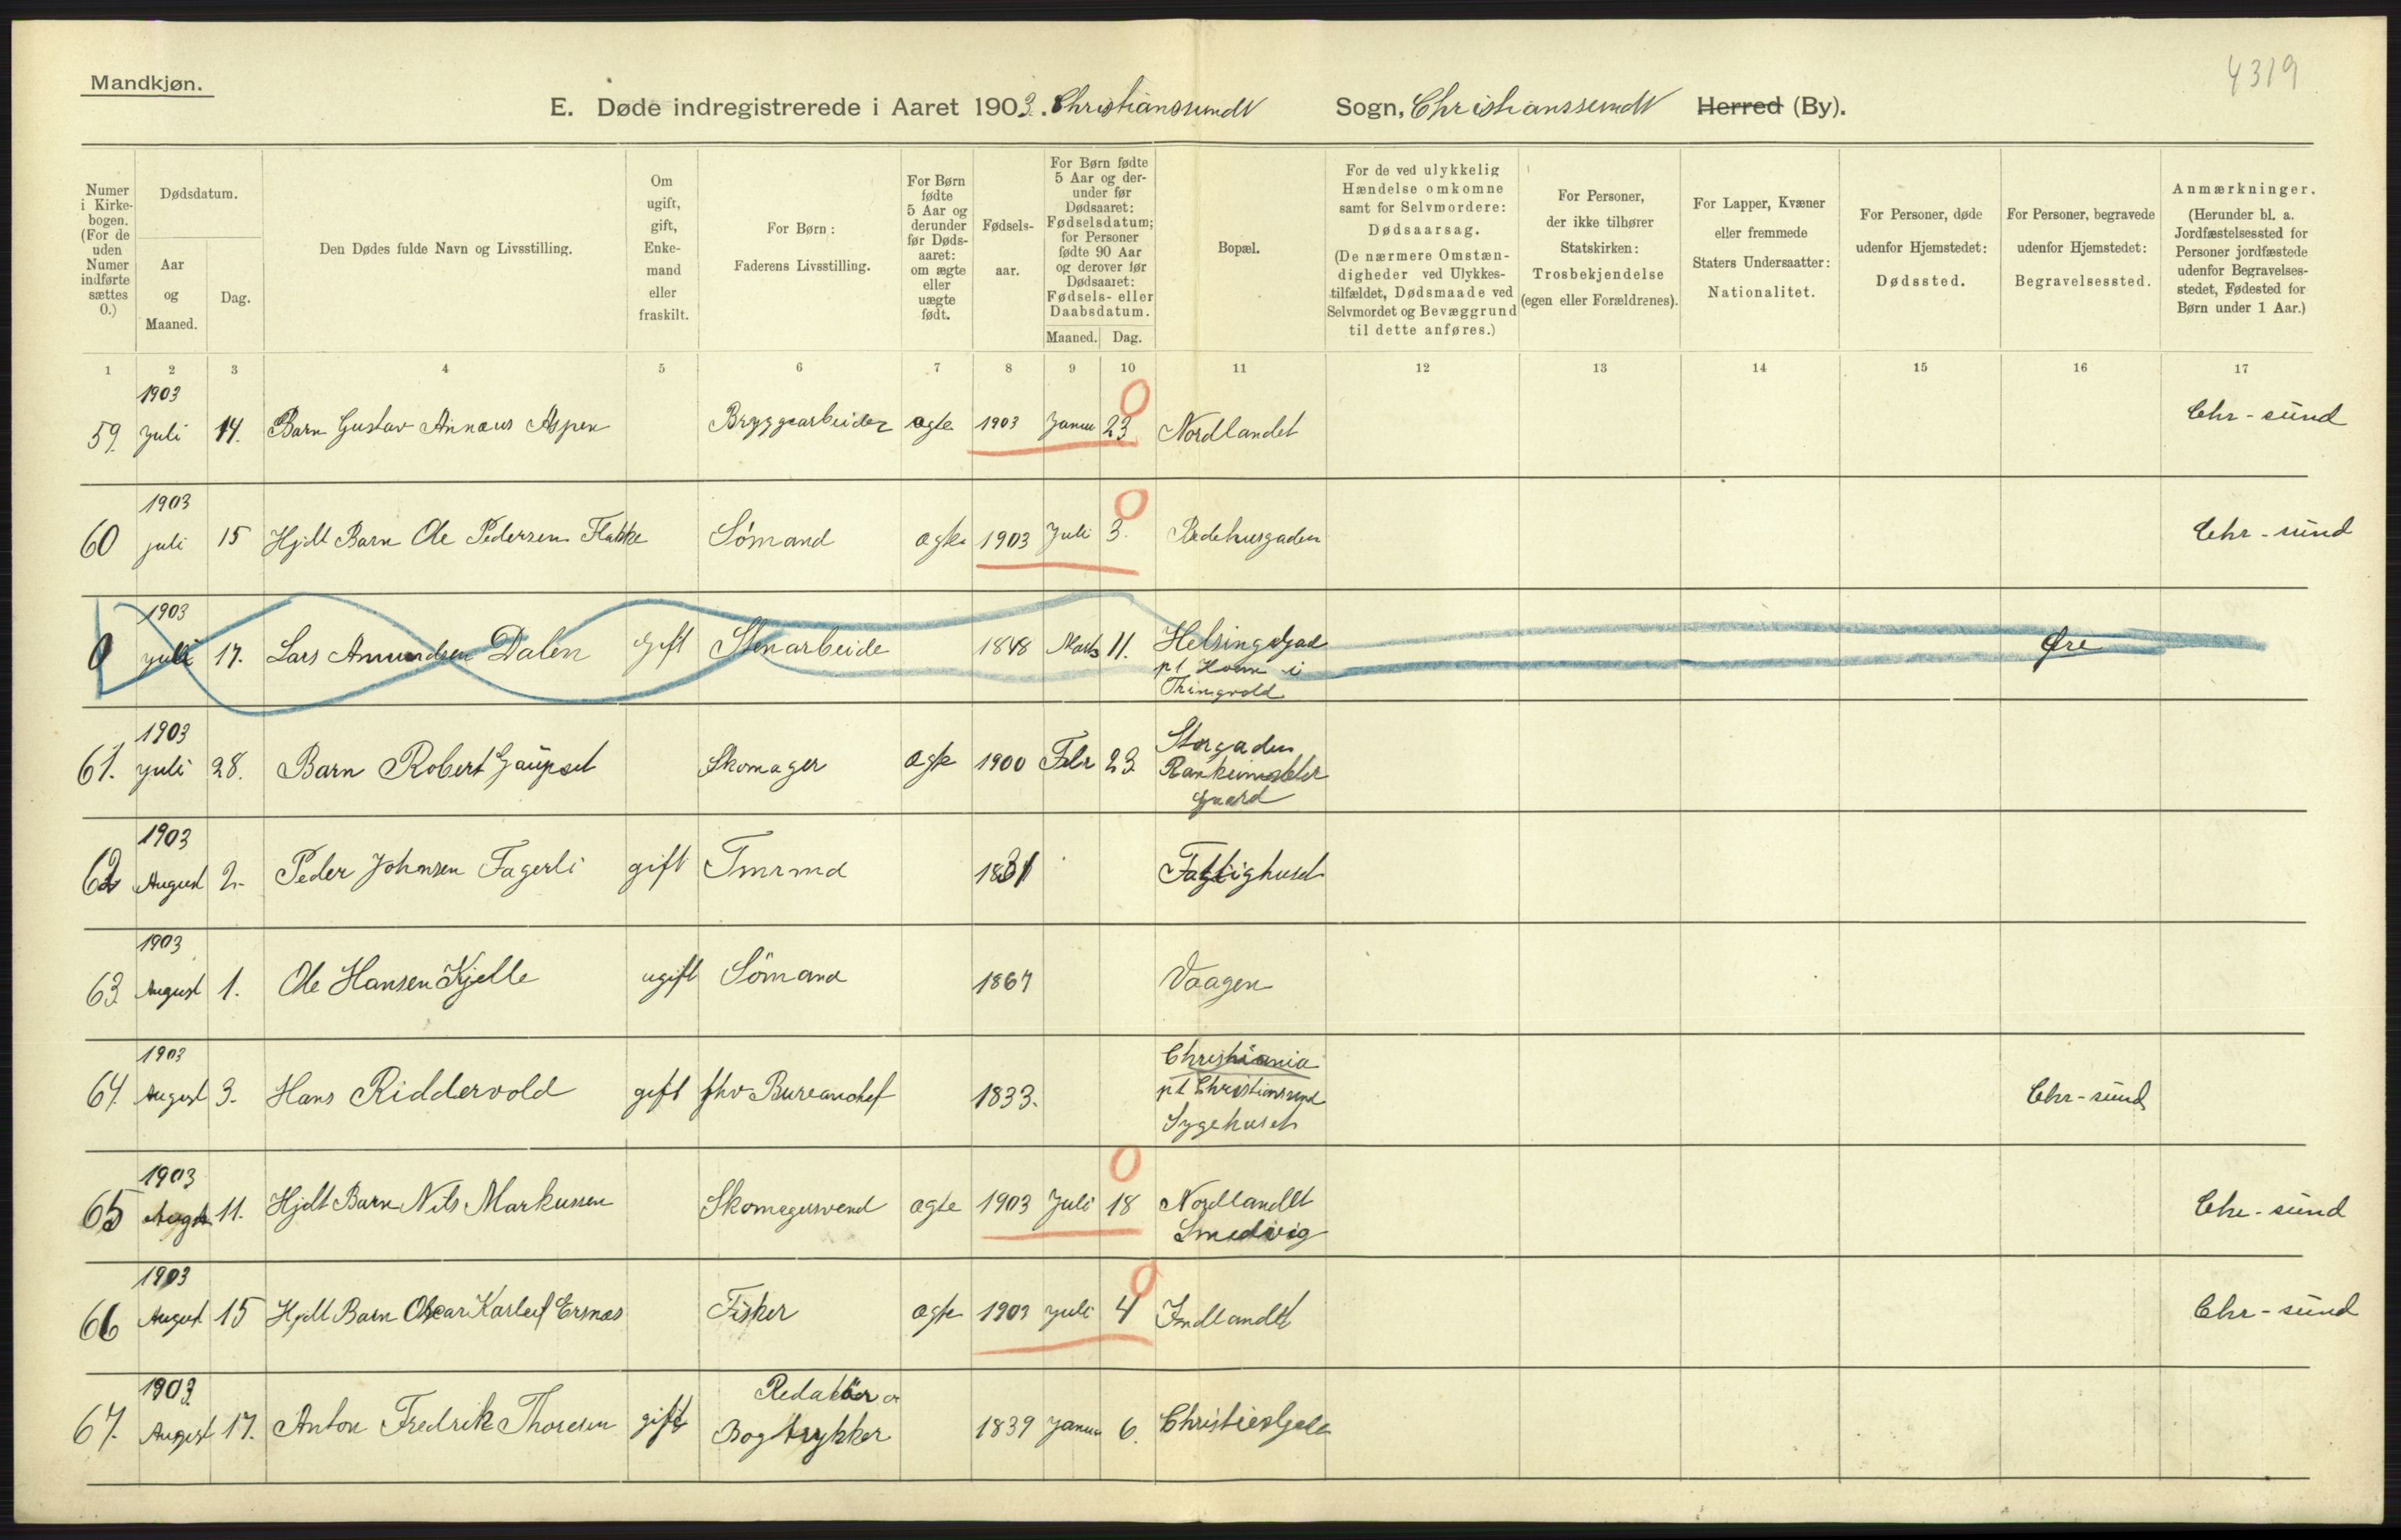 4319
Mandkjøn.
E. Døde indregistrerede i Aaret 1903. Christianssundt Sogn, Christianssundt Herred (By).
Numer i Kirkebogen. (For de uden Numer indførte sættes 0.)
Dødsdatum.
Aar og Maaned.
Dag.
Den Dødes fulde Navn og Livsstilling.
Om ugift, gift, Enkemand eller fraskilt.
For Børn:
Faderens Livsstilling.
For Børn fødte 5 Aar og derunder før Dødsaaret: om ægte eller uægte født.
Fødselsaar.
For Børn fødte 5 Aar og derunder før Dødsaaret: Fødselsdatum; for Personer fødte 90 Aar og derover før Dødsaaret: Fødsels- eller Daabsdatum.
Maaned. Dag.
Bopæl.
For de ved ulykkelig Hændelse omkomne samt for Selvmordere: Dødsaarsag.
(De nærmere Omstændigheder ved Ulykkestilfældet, Dødsmaade ved Selvmordet og Bevæggrund til dette anføres.)
For Personer, der ikke tilhører Statskirken: Trosbekjendelse (egen eller Forældrenes).
For Lapper, Kvæner eller fremmede Staters Undersaatter: Nationalitet.
For Personer, døde udenfor Hjemstedet: Dødssted.
For Personer, begravede udenfor Hjemstedet: Begravelsessted.
Anmærkninger.
(Herunder bl. a. Jordfæstelsessted for Personer jordfæstede udenfor Begravelsesstedet, Fødested for Børn under 1 Aar.)
1 2 3 4 5 6 7 8 9 10 11 12 13 14 15 16 17
1903 0
59. Juli 14. Barn Gustav Annæus Aspen Bryggearbeider ægte 1903 Janu 23 Nordlandet Chr-sund
1903 0
60 juli 15 Hjdt Barn Ole Pedersen Flakke Sømand ægte 1903 Juli 3. Bedehusgaden Chr-sund
1903
0 juli 17. Lars Amundsen Dalen gift Stenarbeide 1848 Marts 11. Helsingsgad Øre
pt Hoem i
Thingvold
1903 Storgaden
61. juli 28. Barn Robert Gaupset Skomager ægte 1900 Febr 23
Gaard
1903
62 August 2. Peder Johansen Fagerli gift 1831 Fattighuset
1903
63 August 1. Ole Hansen Kjelle ugift Sömand 1867 Vaagen
1903 Christiania
64. August 3. Hans Riddervold gift fhv Bureauchef 1833. pt Christianssund Chr-sund
Sygehuset
1903 0
65 August 11. Hjdt Barn Nils Markussen Skomagersvend ægte 1903 Juli 18 Nordlandet Chr-sund
Smedvig
1903 0
66 August 15 Hjdt Barn Oscar Karleif Ersnæs Fisker ægte 1903 juli 4 Indlandet Chr-sund
1903 Redaktör og
67. August 17. Anton Fredrik Thoresen gift Bogtrykker 1839 Janu 6.